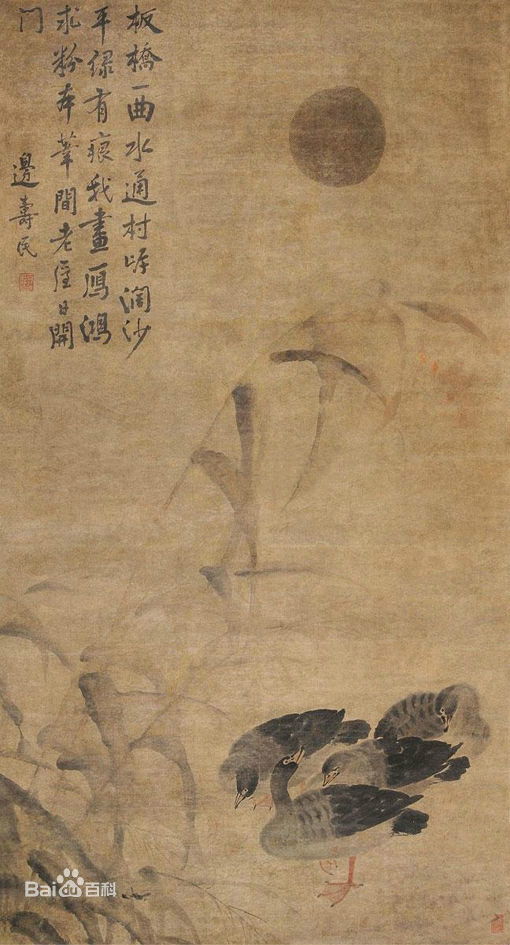 板橋一曲水通村岸濶沙
平緑有痕我畫鴈鴻
求粉本葦間老屋日開
门
邊壽民
Baidu百科